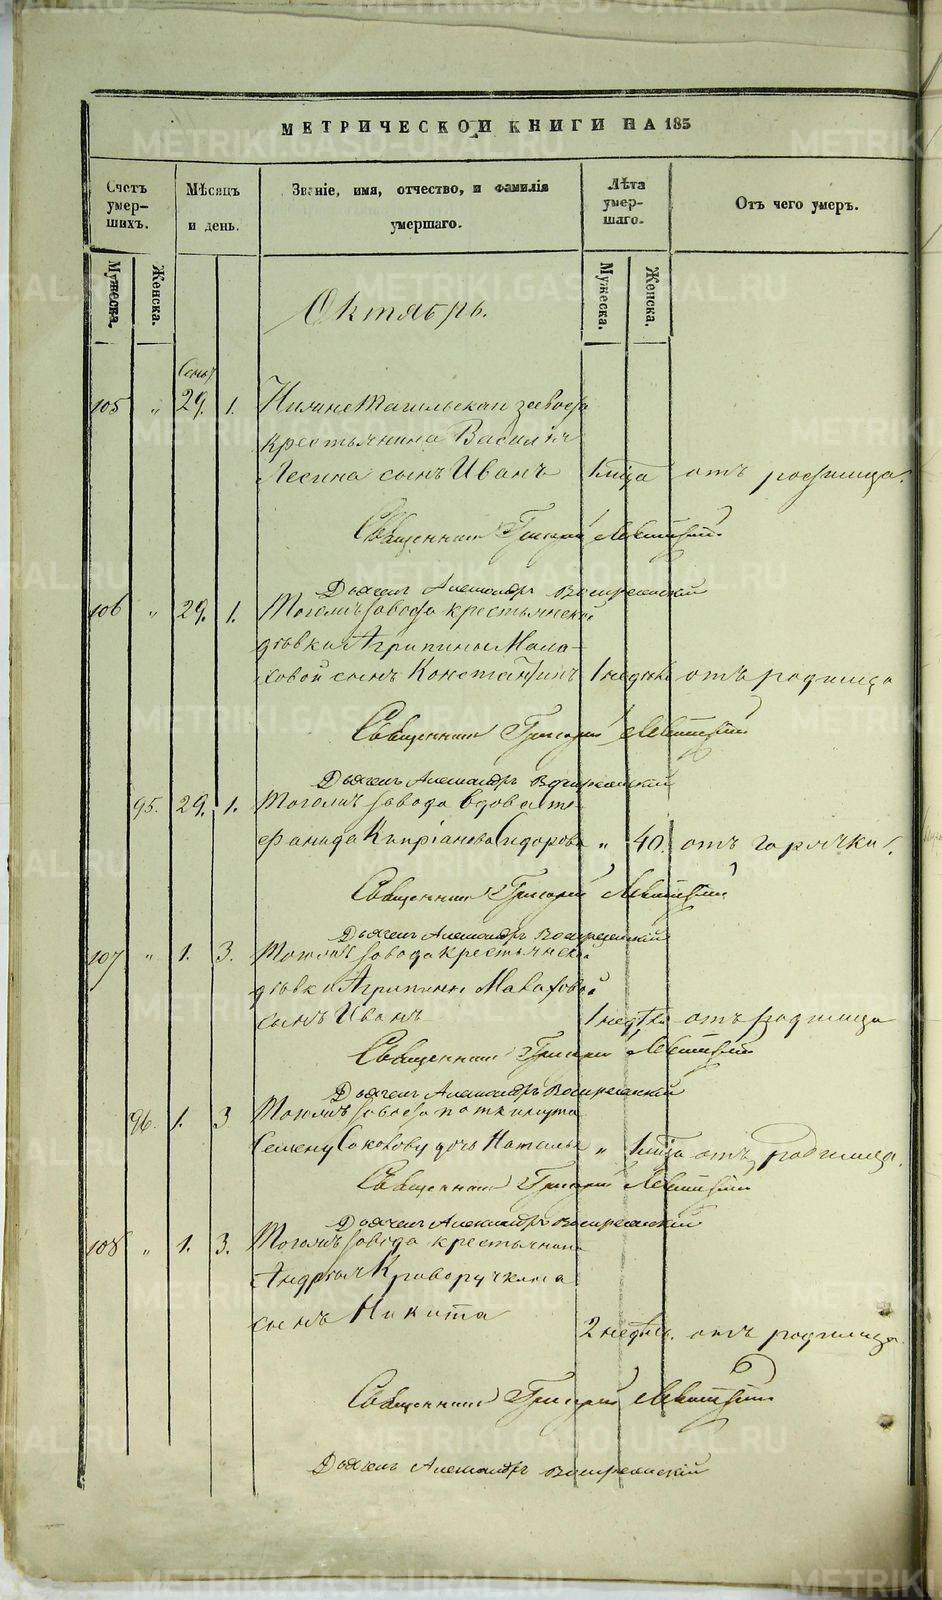 МЕТРИЧЕСКОЙ КНИГИ НА 185
Счетъ умер-шихъ.
Мѣсяцъ и день.
Званіе, имя, отчество, и фамилія умершаго.
Лѣта умер-шаго.
Отъ чего умеръ.
Мужеска.
Женска.
Мужеска.
Женска.
Октябрь.
105 " 29. 1. Нижнетагильскаго завода
крестьянина Василья
сынъ Иванъ 1 мѣсяца отъ родимца.
Священникъ Григорій Левитскій
Дьяконъ Александръ Воскресенскій
106 " 29. 1. Тогожъ завода крестьянской
дѣвки Агрипины Мала-
ховой сынъ Константинъ 1 недѣль отъ родимца
Священникъ Григорій Левитскій
Дьяконъ Александръ Воскресенскій
95. 29. 1. Тогожъ завода вдова Сте
фанида Кипріанова Сидорова " 40. отъ горячки.
Священникъ Григорій Левитскій
Дьяконъ Александръ Воскресенскій
107 " 1. 3. Тогожъ завода крестьянской
дѣвки Агрипины Малаховой
сынъ Иванъ 1 недѣль отъ родимца
Священникъ Григорій Левитскій
Дьяконъ Александръ Воскресенскій
96. 1. 3 Тогожъ завода
Семену Соколову дочь Наталья " 1 мѣсяца отъ родимца.
Священникъ Григорій Левитскій
Дьяконъ Александръ Воскресенскій
108 " 1. 3. Тогожъ завода крестьянина
Андрея Криворучкина
сынъ Никита 2 недѣль. отъ родимца.
Священникъ Григорій Левитскій
Дьяконъ Александръ Воскресенскій
METRIKI.GASO-URAL.RU